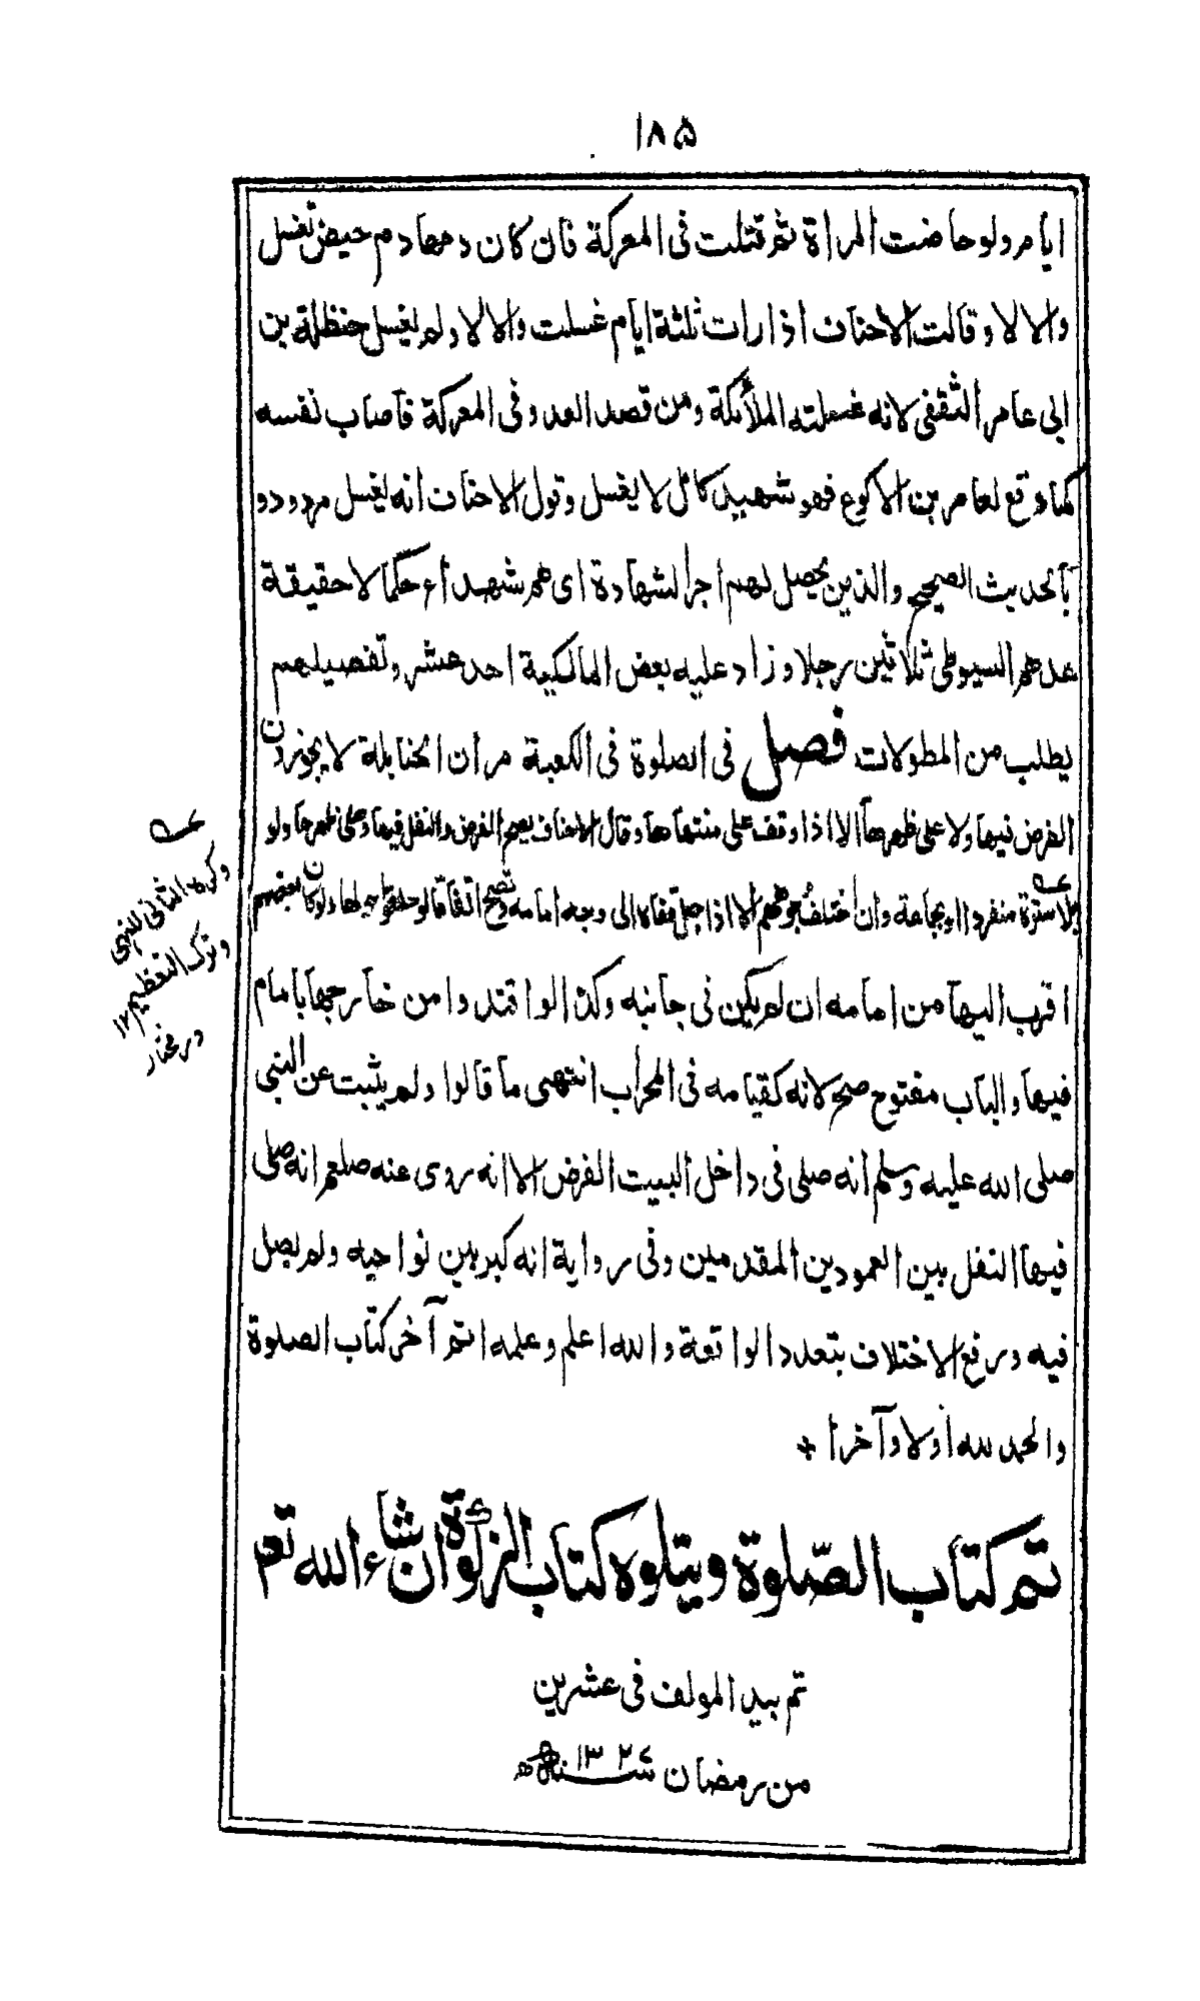 ١٨٥
ايام ولو حاضت المراة ثم قتلت فى المعركة فان كان دمها دم حيض تغسل
والا لا وقالت الاحناف اذا رات ثلثة ايام غسلت والا لا ولم يغسل حنظلة بن
ابى عامر الثقفى لانه غسلته الملأئكة ومن قصد العدو فى المعركة فاصاب نفسه
كما وقع لعامر بن الاكوع فهو شهيد كامل لا يغسل وقول الاحناف انه يغسل مردود
بالحديث الصحيح والذين يحصل لهم اجر الشهادة اى هم شهدأء حكما لا حقيقة
عدهم السيوطى ثلاثين رجلا وزاد عليه بعض المالكية احد عشر وتفصيلهم
يطلب من المطولات فصل فى الصلوة فى الكعبة مر ان الحنابلة لا يجوزون
الفرض فيها ولا على ظهرها الا اذا وقف على منتهاها وقال الاحناف يصح الفرض والنفل فيها وعلى ظهرها ولو
بلا سترة منفردا او بجماعة وان اختلف وجوههم الا اذا جعل قفاه الى وجه امامه وتصح اتفاقا لو حلقوا حولها ولو كان بعضهم
اقرب اليها من امامه ان لم يكن فى جانبه وكذا لو اقتدوا من خارجها بامام
فيها والباب مفتوح صح لانه كقيامه فى المحراب انتهى ما قالوا ولم يثبت عن النبى
صلى الله عليه وسلم انه صلى فى داخل البيت الفرض الا انه روى عنه صلعم انه صلى
فيها النفل بين العمودين المقدمين وفى رواية انه كبر بين نواحيه ولم يصل
فيه ورفع الاختلاف بتعدد الواقعة والله اعلم وعلمه اتم آخر كتاب الصلوة
والحمد لله اولا وآخرا +
تم كتاب الصّلوة ويتلوه كتاب الزكوة ان شاء الله تعم
تم بيد المولف فى عشرين
من رمضان سنة ١٣٢٧ ھ
وكره الثانى للنهى
وترك التعظيم ١٢
در مختار